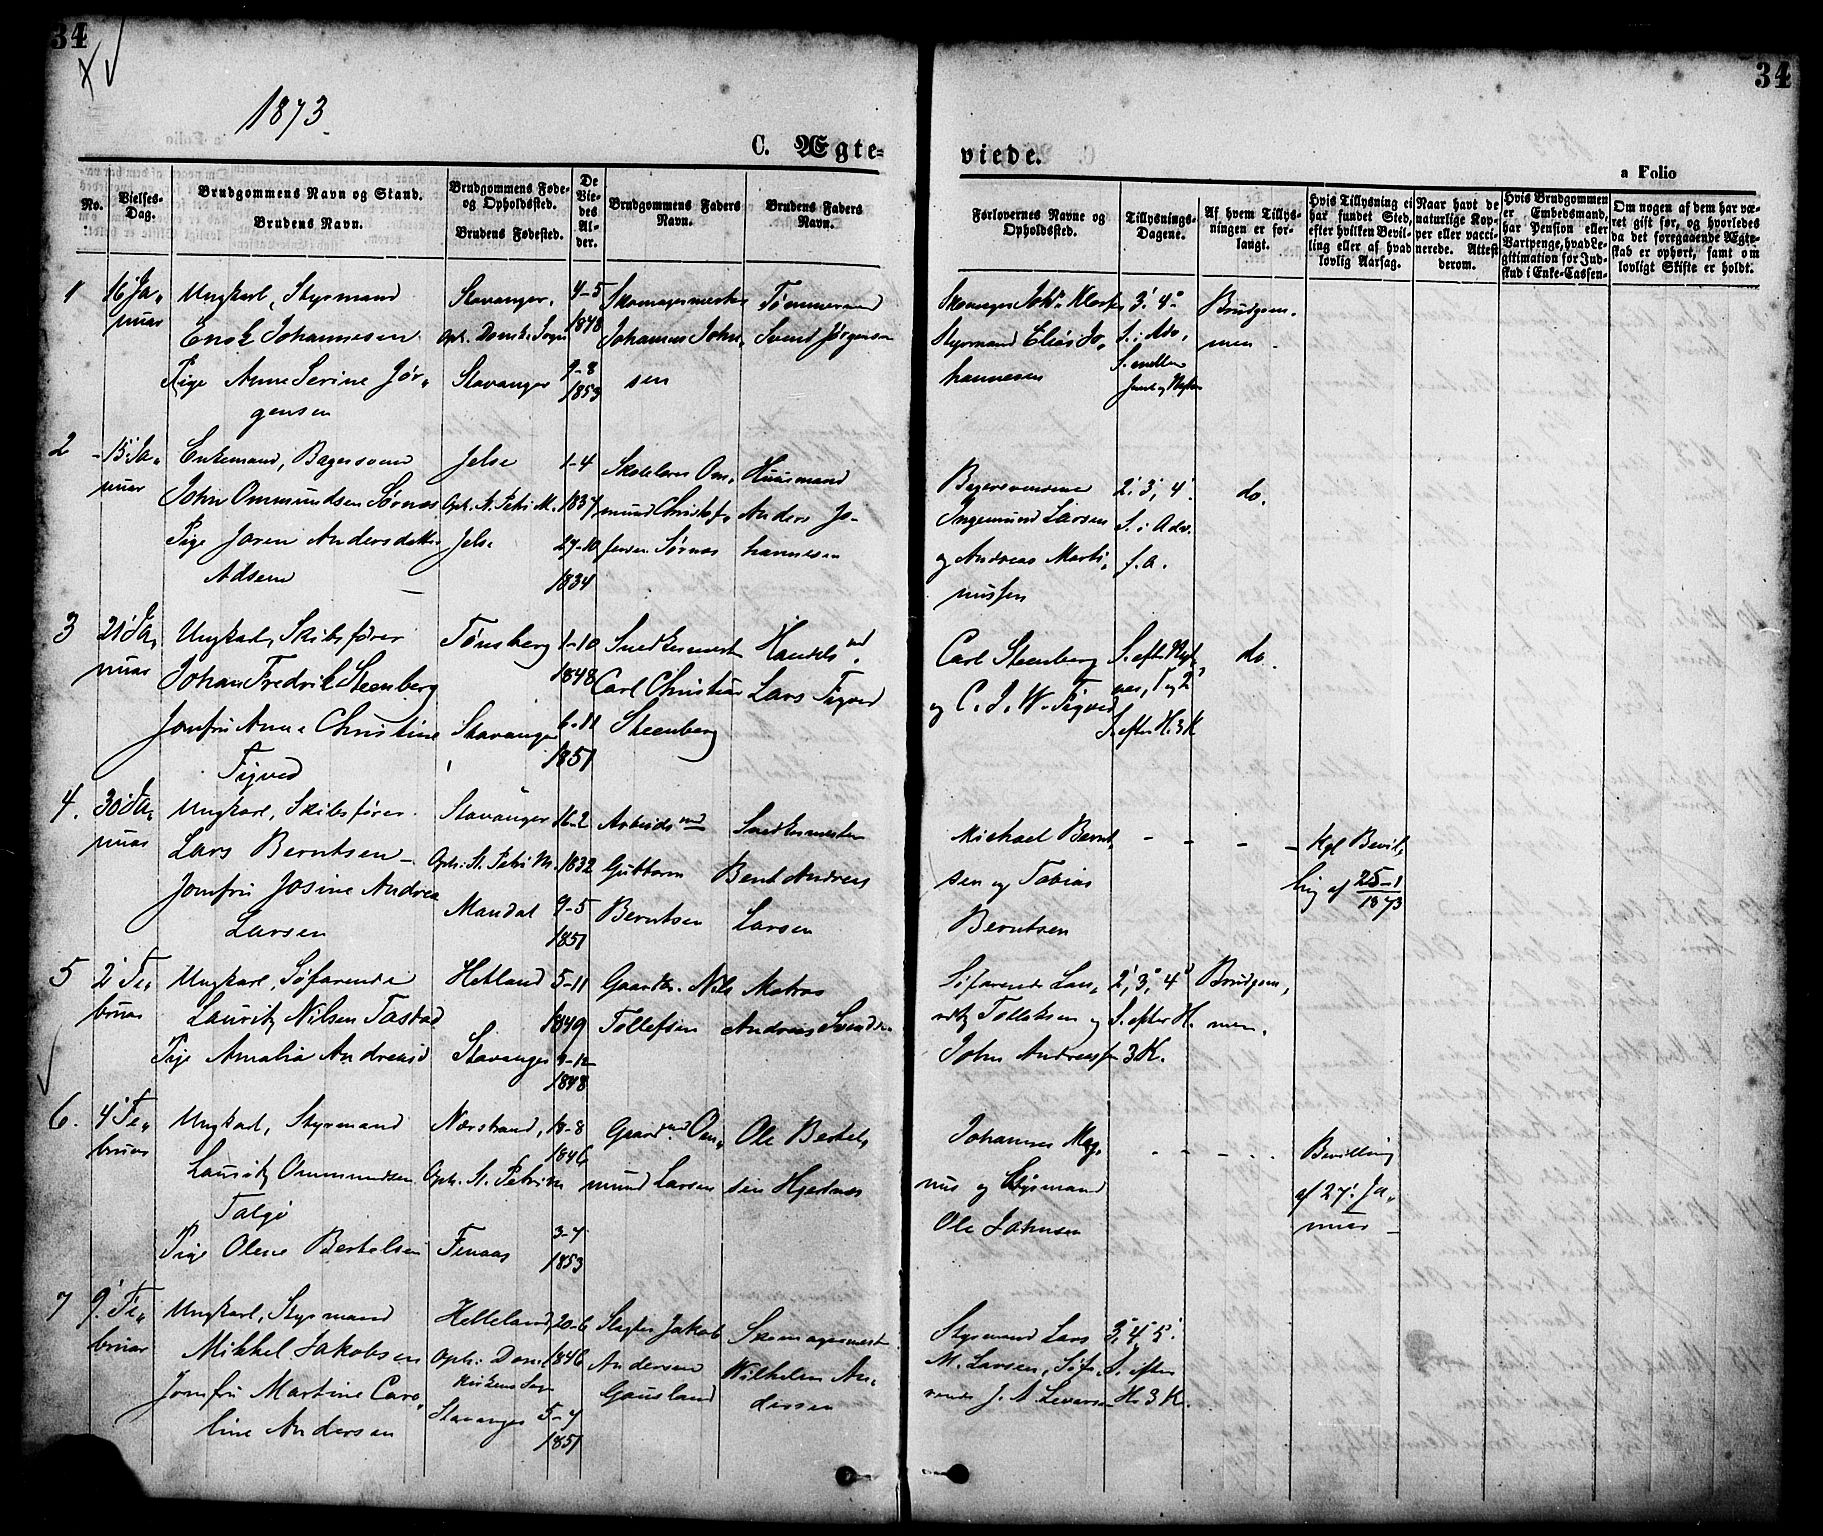 34
34
1873.
C. Ægte-
viede.
a Folio
No.
Vielses-
Dag.
Brudgommens Navn og Stand.
Brudens Navn.
Brudgommens Føde-
og Opholdssted.
Brudens Fødested.
De
Vie-
des
Al-
der.
Brudgommens Faders
Navn.
Brudens Faders
Navn.
Forlovernes Navne og
Opholdssted.
Tillysnings-
Dagene.
Af hvem Tillys-
ningen er for-
langt.
Hvis Tillysning ei
har fundet Sted,
efter hvilken Bevil-
ling eller af hvad
lovlig Aarsag.
Naar havt de
naturlige Kop-
per eller vacci-
nerede. Attest
derom.
Hvis Brudgommen
er Embedsmand,
har Pension eller
Vartpenge, hvad Le-
gitimation for Ind-
skud i Enke-Cassen.
Om nogen af dem har væ-
ret gift før, og hvorledes
da det foregaaende Ægte-
skab er ophørt, samt om
lovligt Skifte er holdt.
1
16 Ja„
nuar
Ungkarl, Styrmand
Johannesen
Pige Anne Serine Jør„
gensen
Stavanger,
Oph. Domk. Sogn
Stavanger
4-5
1848
9-8
1853
Skomagermester
Johannes John„
sen
Tømmermand
Svend Jørgensen
Skomager
Styrmand Elias Jo„
hannesen
3' 4'
S. i Adv.
S. mellem
Brudgom„
men
2
15 Ja„
nuar
Enkemand, Bagersvend
John Ommundsen Sørnæs
Pige Joren Andersdatter
Adsem
Jelse
Oph. St. Petri M.
Jelse
1-4
1837
27-10
1834
Skolelærer Om„
mund Christof„
fersen Sørnæs
Huusmand
Anders Jo-
hannesen
Bagersvendene
Ingemund Larsen
og Andreas Marti„
nussen
2' 3' 4'
S. i Adv.
f. A.
do.
3
21 Ja„
nuar
Ungkarl, Skibsfører
Johan Fredrik Steenberg
Jomfru Anna Christine
Tigved
Tønsberg
Stavanger
1-10
1848
6-11
1851
Snedkermest
Carl Christian
Steenberg
Handelsmd.
Lars Tigved
Carl Steenberg
og C. J. W. Tigved
S. efter Nyt„
aar, 1' og 2'
S. efter H. 3 K
do.
4.
30 Ja„
nuar
Ungkarl, Skibsfører
Lars Berntsen
Jomfru Josine Andrea
Larsen
Stavanger
Oph. St. Petri M.
Mandal
16-2
1832
9-5
1851
Arbeidsmd
Guttorm
Berntsen
Snedkermester
Bent Andreas
Larsen
Michael Bernt„
sen og Tobias
Berntsen
- - - -
Kgl Bevil„
ling af 25-1
1873
5
2' Fe„
bruar
Ungkarl, Søfarende
Lauritz Nilsen Tastad
Pige Amalia Andreasd
Hetland
Stavanger
5-11
1849
9-12
1848
Gaardbr. Nils
Tollefsen
Matros
Andreas Svendsen
Søfarende Lau„
ritz Tolleksen og
John Andreassen
2', 3', 4'
S. efter H.
3 K.
Brudgom„
men.
6.
4' Fe„
bruar
Ungkarl, Styrmand
Lauritz Ommundsen
Talgø
Pige Olene Bertelsen
Nærstrand,
Oph. St. Petri M
Finaas
18-8
1846
3-7
1853
Gaardmd Om„
mund Larsen
Ole Bertel„
sen Hjertnæs
Johannes Mag„
nus og Styrmand
Ole Johnsen
- - - -
Bevilling
af 27' Ja„
nuar
7
9' Fe„
bruar
Ungkarl, Styrmand
Mikkel Jakobsen
Jomfru Martine Caro„
line Andersen
Helleland,
Oph. Dom„
kirkens Sogn
Stavanger
20-6
1846
5-7
1851
Slagter Jakob
Andersen
Gausland
Skomagermest
Wilhelm An„
dersen
Styrmand Lars
M. Larsen, Søfa„
rende J. A. Leversen
3' 4' 5'
S. efter
H. 3 K.